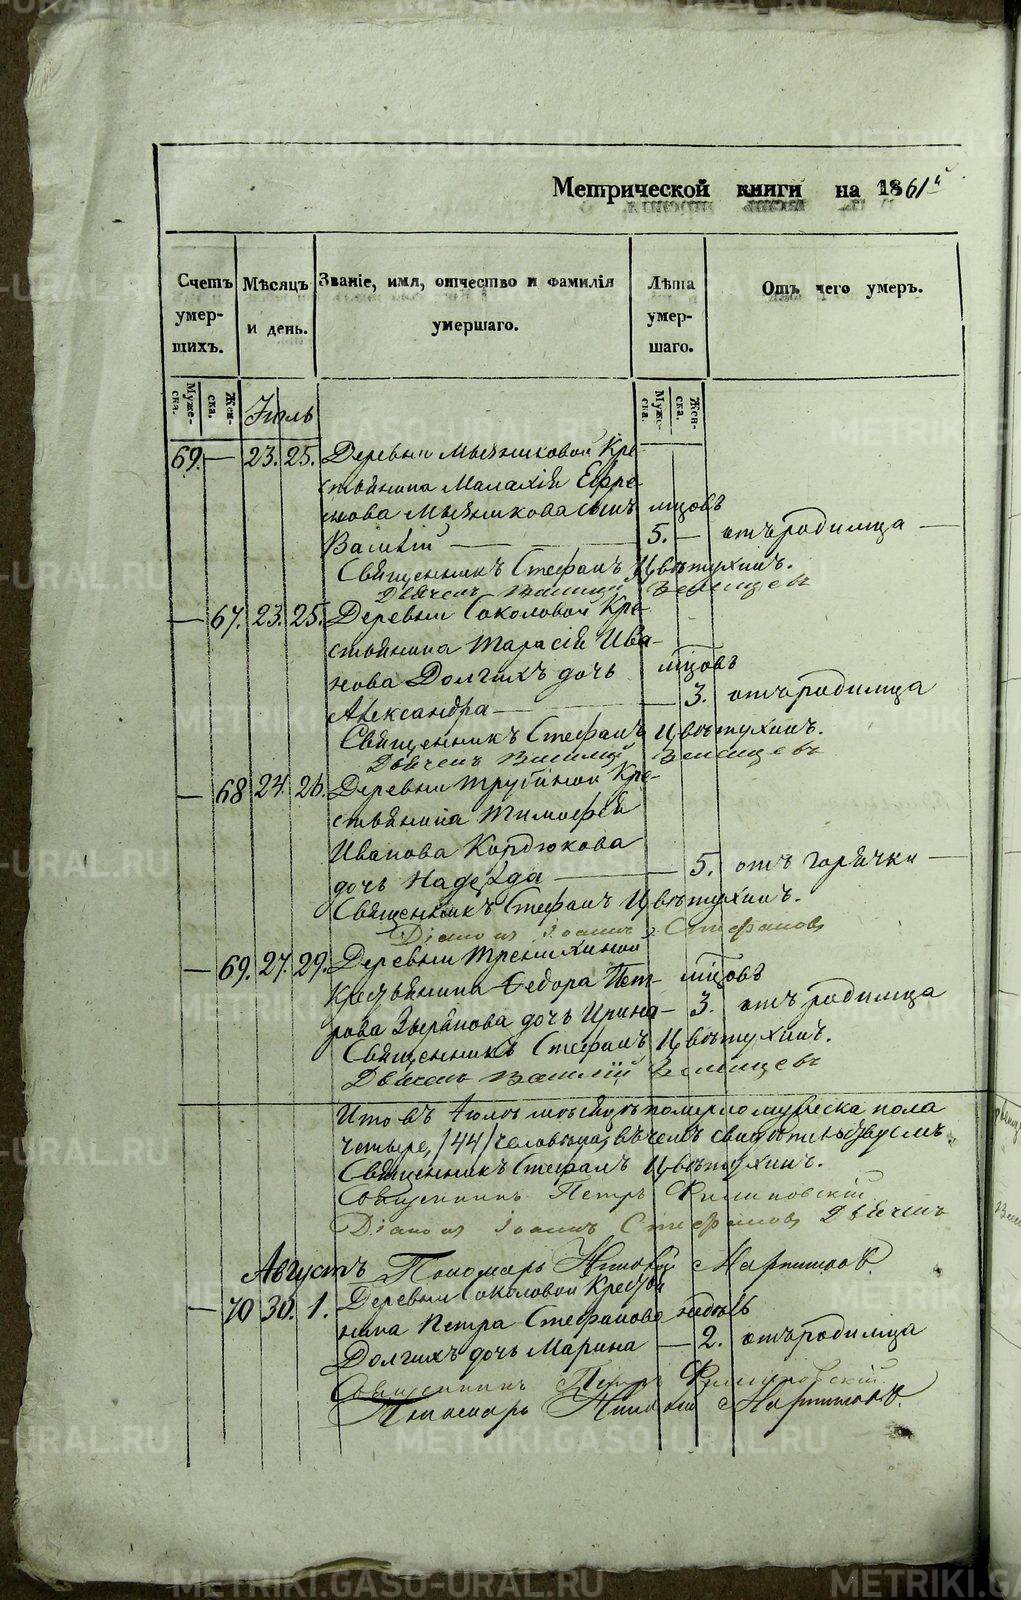 Метрической книги на 1861й
Счетъ умер-шихъ.
Мѣсяцъ и день.
Званіе, имя, отчество и фамилія умершаго.
Лѣта умер-шаго.
Отъ чего умеръ.
Муже-ска.
Жен-ска.
Муже-ска.
Жен-ска.
Іюль
69. — 23. 25. Деревни Мясниковой Кре-
стьянина Малахія Ефре-
мова Мясникова сынъ мцовъ
Василій — 5. — отъ родимца —
Священникъ Стефанъ Цвѣтухинъ.
Дьячекъ Василій
— 67. 23. 25. Деревни Соколовой Кре-
стьянина Тарасія Ива-
нова Долгихъ дочь мцовъ
Александра — 3. отъ родимца
Священникъ Стефанъ Цвѣтухинъ.
Дьячекъ Василій
— 68 24. 26. Деревни Трубиной Кре-
стьянина Тимофея
Иванова Кордюкова
дочь Надежда — 5. отъ горячки —
Священникъ Стефанъ Цвѣтухинъ.
Діаконъ Іоаннъ Стефановъ
— 69. 27. 29. Деревни
Крестьянина Федора Пет- мцовъ
рова Зырянова дочь Ирина — 3. отъ родимца
Священникъ Стефанъ Цвѣтухинъ.
Дьячекъ Василій
Итого въ Іюлѣ мѣсяцѣ померло пола
четыре, /44/ человѣка, въ чемъ свидѣтельствуемъ
Священникъ Стефанъ Цвѣтухинъ.
Священникъ Петръ Филиповскій
Діаконъ Іоаннъ Стефановъ Дьячекъ
Августъ Пономарь
— 70 30. 1. Деревни Соколовой Крестья
нина Петра Стефанова недѣль
Долгихъ дочь Марина — 2. отъ родимца
Священникъ Петръ Филиповскій
Пономарь